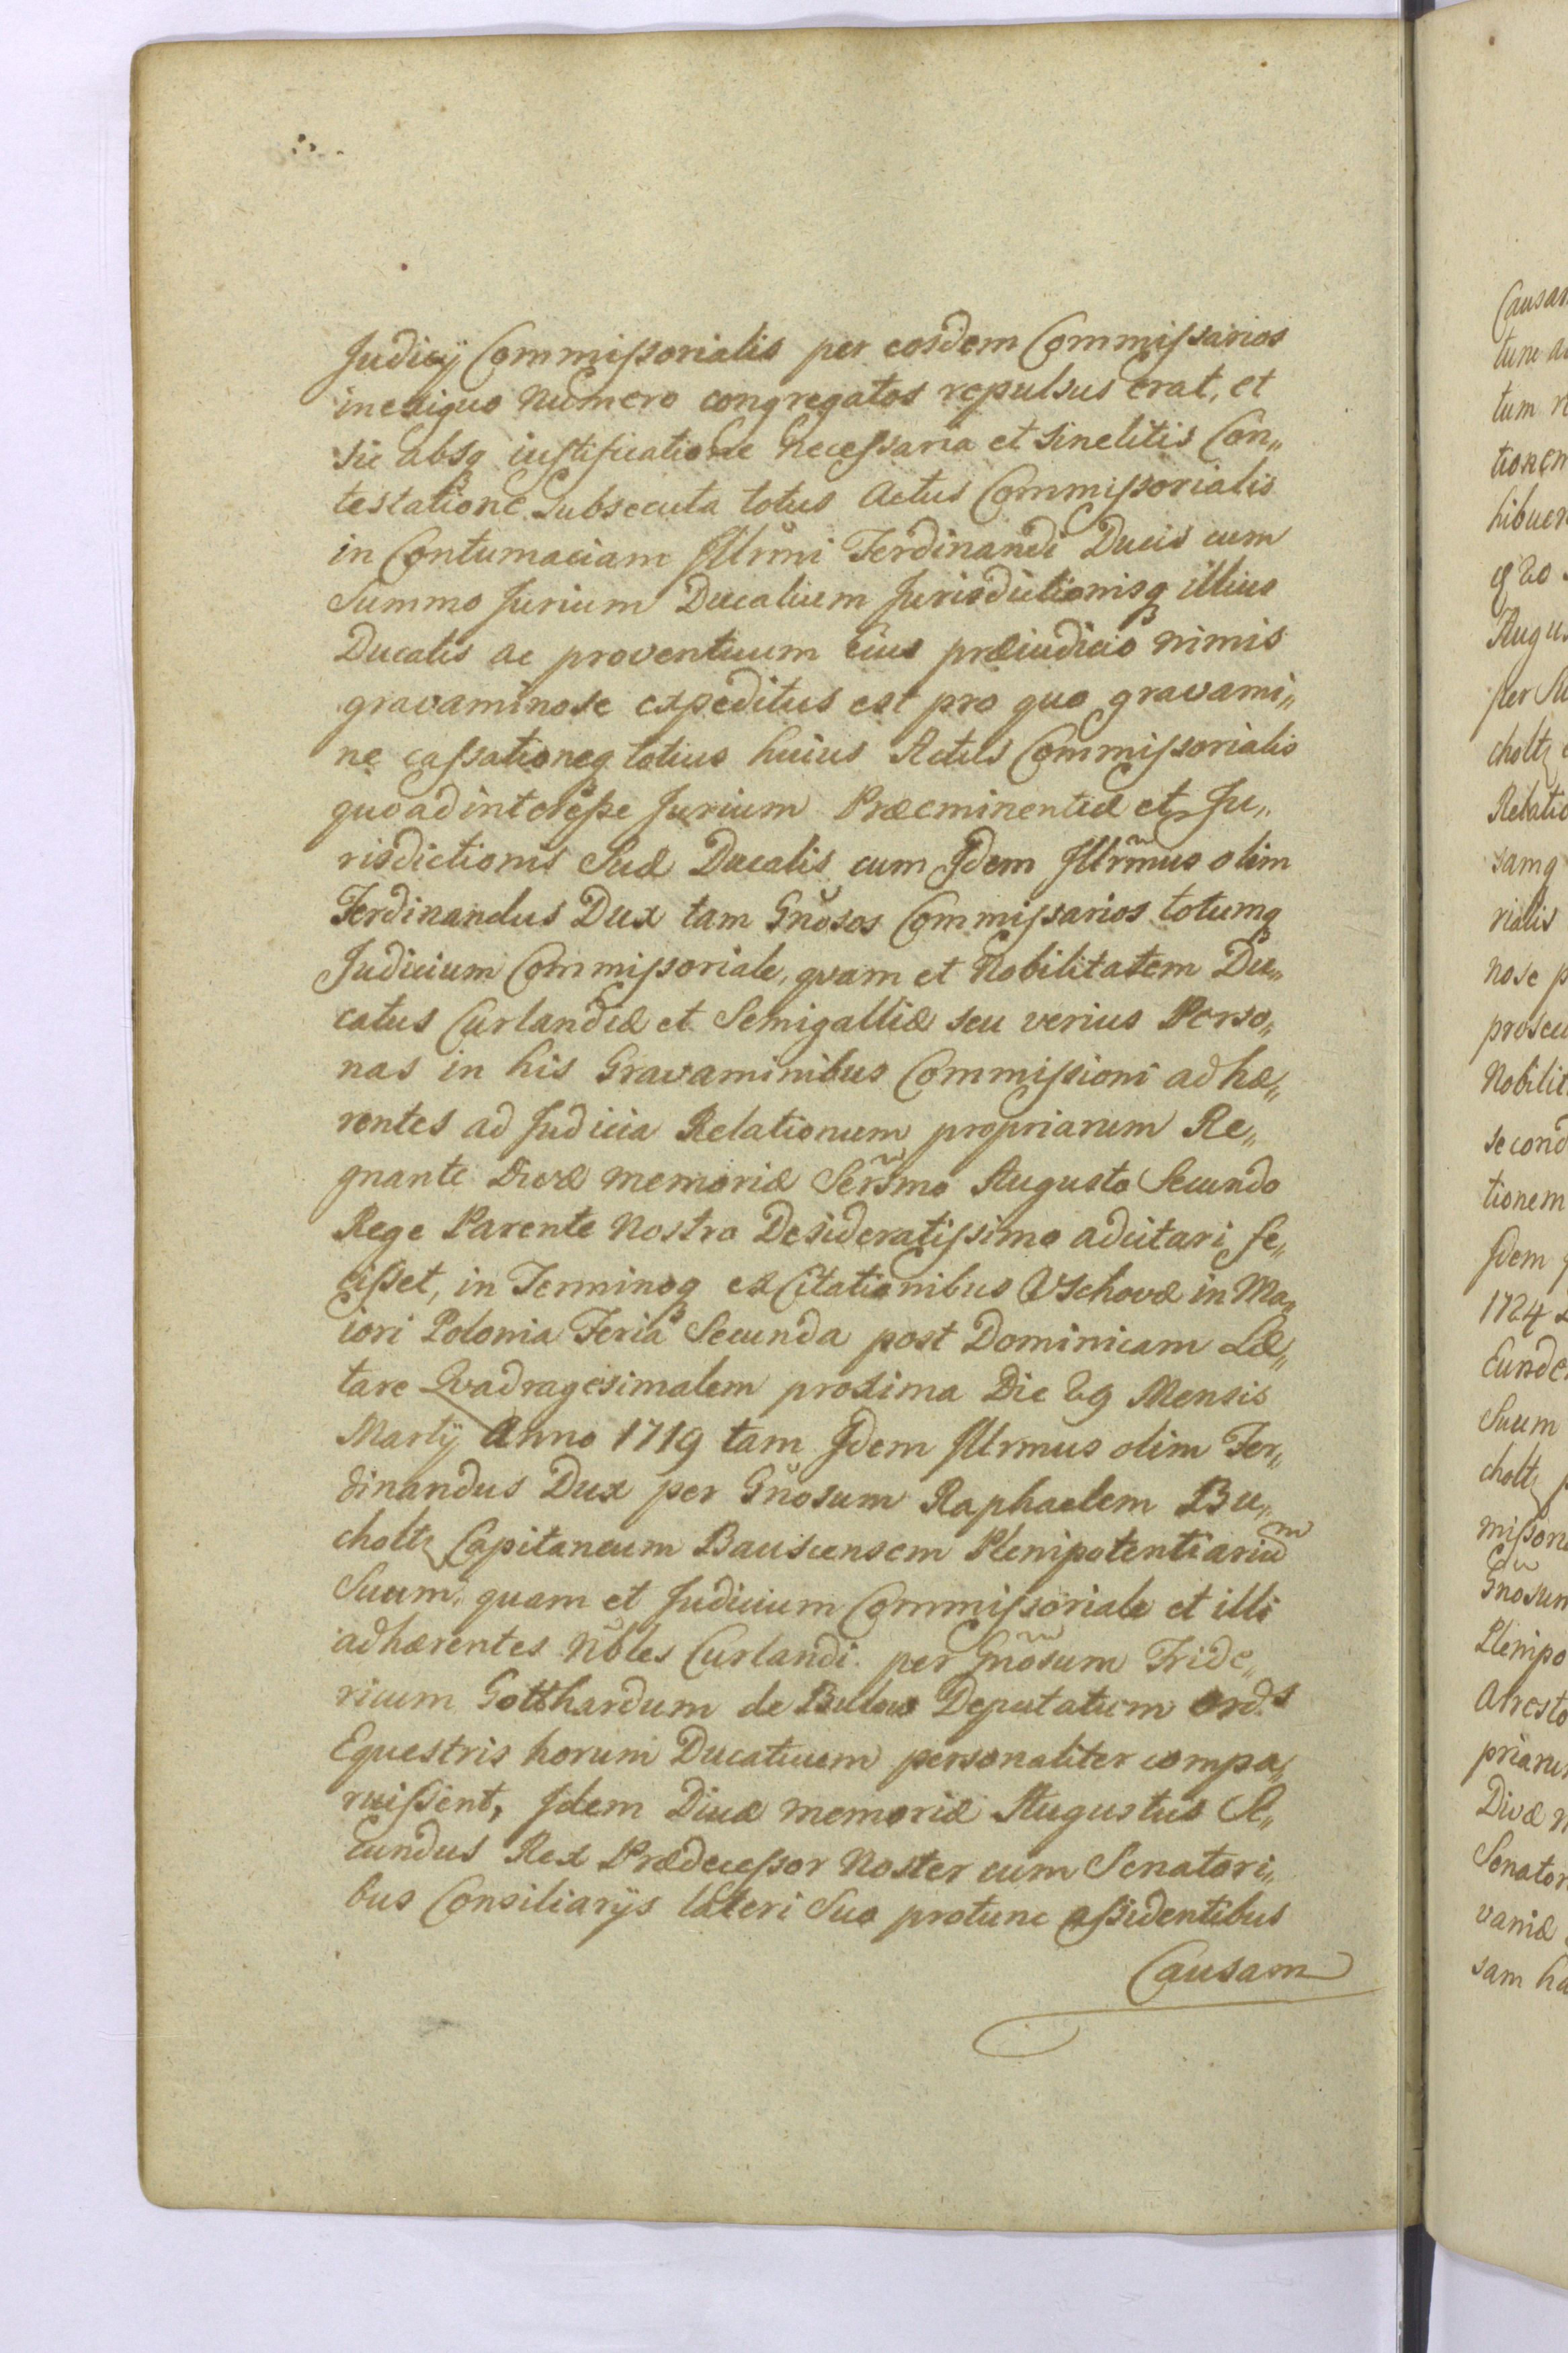 Judicÿ Commissorialis per eosdem Commissarios
in exiguo Numero congregatos repulsus erat, et
sic absq iustificatione necessaria et sine litis Con„
testatione subsecuta totus Actus Commissorialis
in Contumaciam Illrmi Ferdinandi Ducis cum
Summo Jurium Ducalium Jurisdictionisq illius
Ducatis ac proventuum eius præiudicio nimis
gravaminose expeditus est pro quo gravami„
ne cassationeq totius huius Actus Commissorialis
quoad interesse Jurium Præeminentiæ et Ju„
risdictionis Suæ Ducalis cum Idem Illrmus olim
Ferdinandus Dux tam Gnosos Commissarios totumq
Judicium Commissoriale, qvam et Nobilitatem Du„
catus Curlandiæ et Semigalliæ seu verius Perso„
nas in his Gravaminibus Commissioni adhæ„
rentes ad Judicia Relationum propriarum Re„
gnante Divæ memoriæ Serrmo Augusto Secundo
Rege Parente Nostro Desideratissimo adcitari fe„
cisset, in Terminoq ex Citationibus Vschovæ in Ma„
iori Polonia Feria Secunda post Dominicam Læ„
tare Qvadragesimalem proxima Die 29 Mensis
Martÿ Anno 1719 tam Idem Illrmus olim Fer„
dinandus Dux per Gnosum Raphaelem Bu„
choltz Capitaneum Bauscensem Plenipotentiariũ
Suum, quam et Judicium Commissoriale et illi
adhærentes Nobles Curlandi per Gnosum Fride„
ricum Gotthardum de Bulow Deputatum Ord.s
Equestris horum Ducatuum personaliter compa„
ruissent, Idem Divæ memoriæ Augustus Se„
cundus Rex Prædecessor Noster cum Senatori„
bus Consiliarÿs lateri Suo protunc assidentibus
Causam